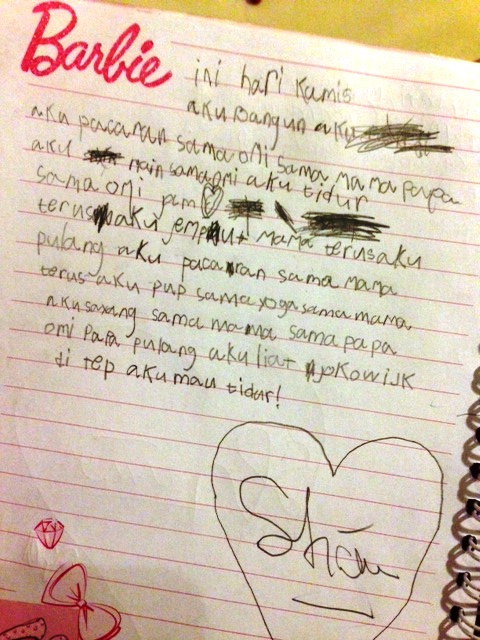 Barbie
ini hari kamis
aku bangun aku
aku pacaran sama omi sama mama papa
aku main sama omi aku tidur
sama omi jam
terus aku jemput mama terus aku
pulang aku pacaran sama mama
terus aku pup sama yoga sama mama
aku sayang sama mama sama papa
omi papa pulang aku liat jokowi JK
di tep aku mau tidur!